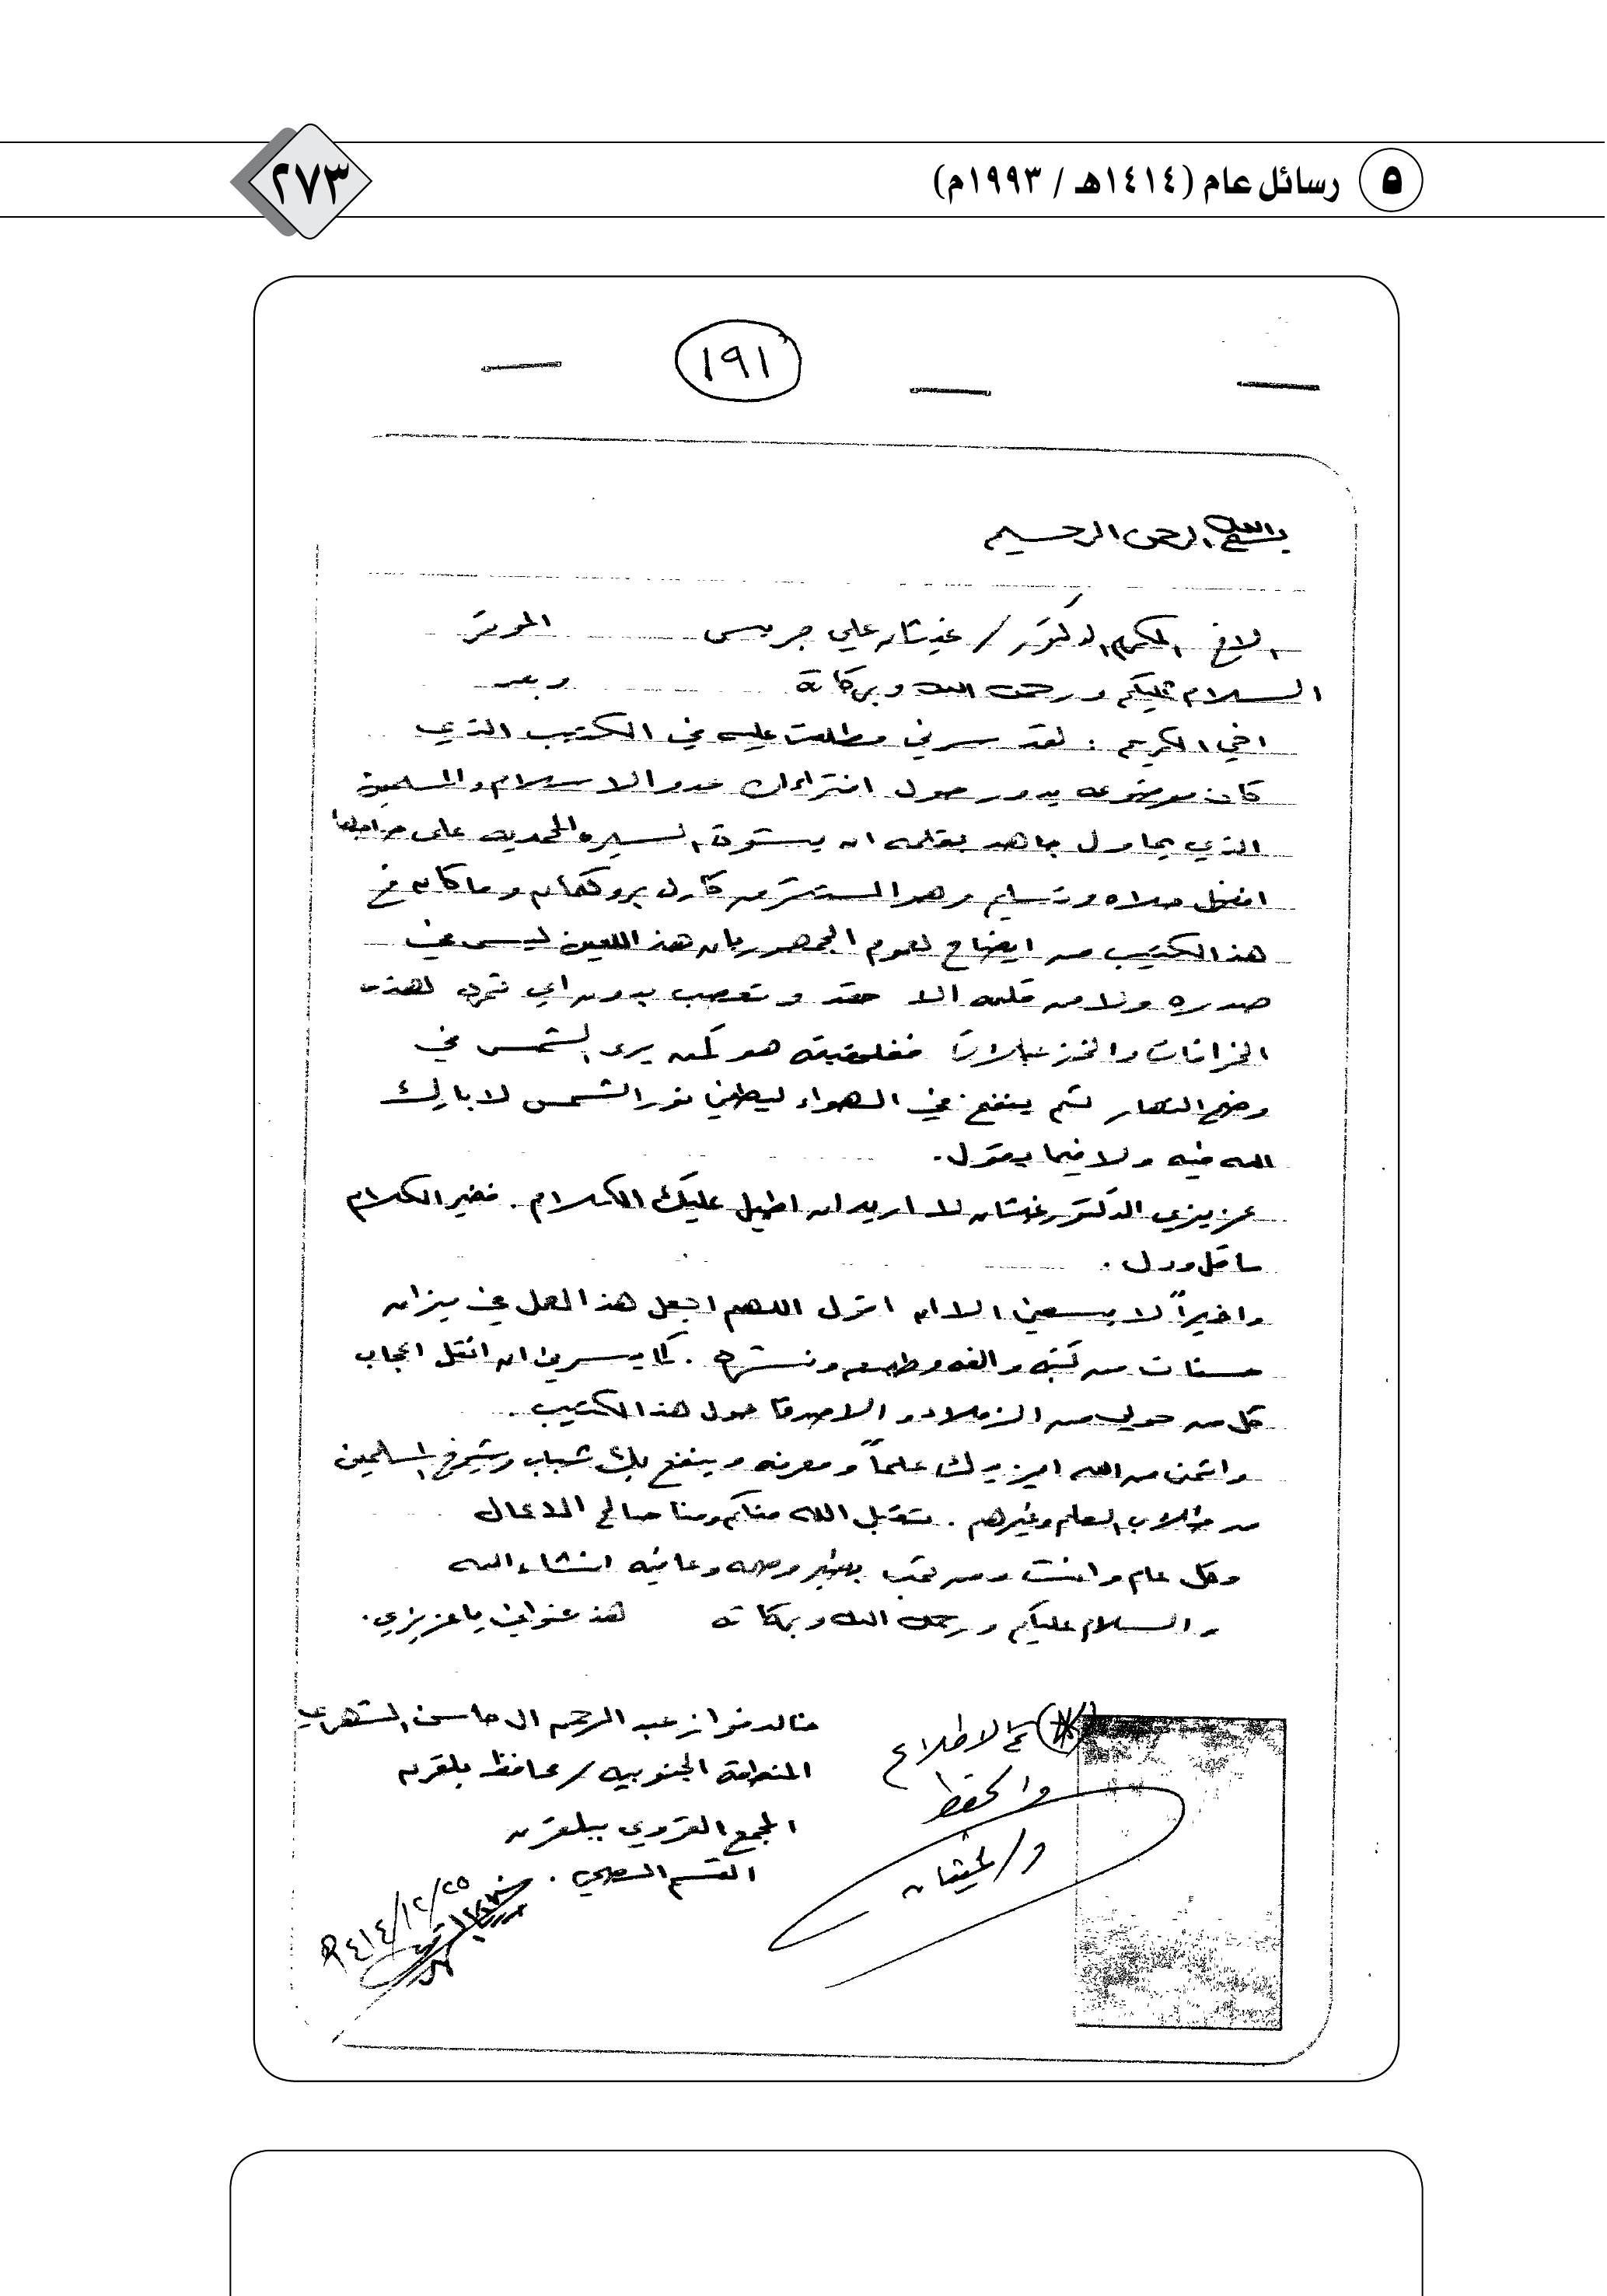 ٥ رسائل عام (١٤١٤هـ / ١٩٩٣م)
٢٧٣
١٩١
بسم الله الرحمن الرحيم
الاخ المكرم الدكتور / غيثان علي جريس الموقر
السلام عليكم ورحمة الله وبركاته وبعد
اخي الكريم : لقد سرني مطلعت عليه في الكتيب الذي
كان موضوعه يدور حول افتراءات عدو الاسلام والمسلمين
الذي يحاول جاهد بقلمه ان يسترق السيره المحمديه على صاحبها
افضل صلاه وتسليم وهو المستشرق كارل بروكلمان وما كان في
هذا الكتيب من ايضاح لعموم الجمهور بان هذا اللعين ليس في
صدره ولا من قلمه الا حقد وتعصب بدون اي لهذه
الخرافات والخزعبلات هو كمن يرى الشمس في
وضح النهار ثم ينفخ في الهواء ليطفئ نور الشمس لا بارك
الله فيه ولا فيما يقول .
عزيزي الدكتور غيثان لا اريد ان اطيل عليك الكلام . فخير الكلام
ماقل ودل .
واخيراً لا يسعني الا ان اقول اللهم اجعل هذا العمل في ميزان
حسنات من كتبه والفه وطبعه ونشره . كما يسرني ان انقل اعجاب
كل من حولي من الزملاء والاصدقا حول هذا الكتيب .
واتمنى من الله ان يزيدك علماً ومعرفه وينفع بك شباب وشيوخ المسلمين
من طلاب العلم وغيرهم . تقبل الله منكم ومنا صالح الاعمال
وكل عام وانت ومن تحب بخير وصحه وعافيه انشاء الله
والسلام عليكم ورحمة الله وبركاته هذا عنواني ياعزيزي .
خالد فواز عبد الرحمن ال حاسن الشهري
المنطقة الجنوبيه / محافظة بلقرن
المجمع القروي ببلقرن
القسم الصحي .
٢٥/١٢/١٤١٤هـ
تم الاطلاع
والحفظ
د/ غيثان